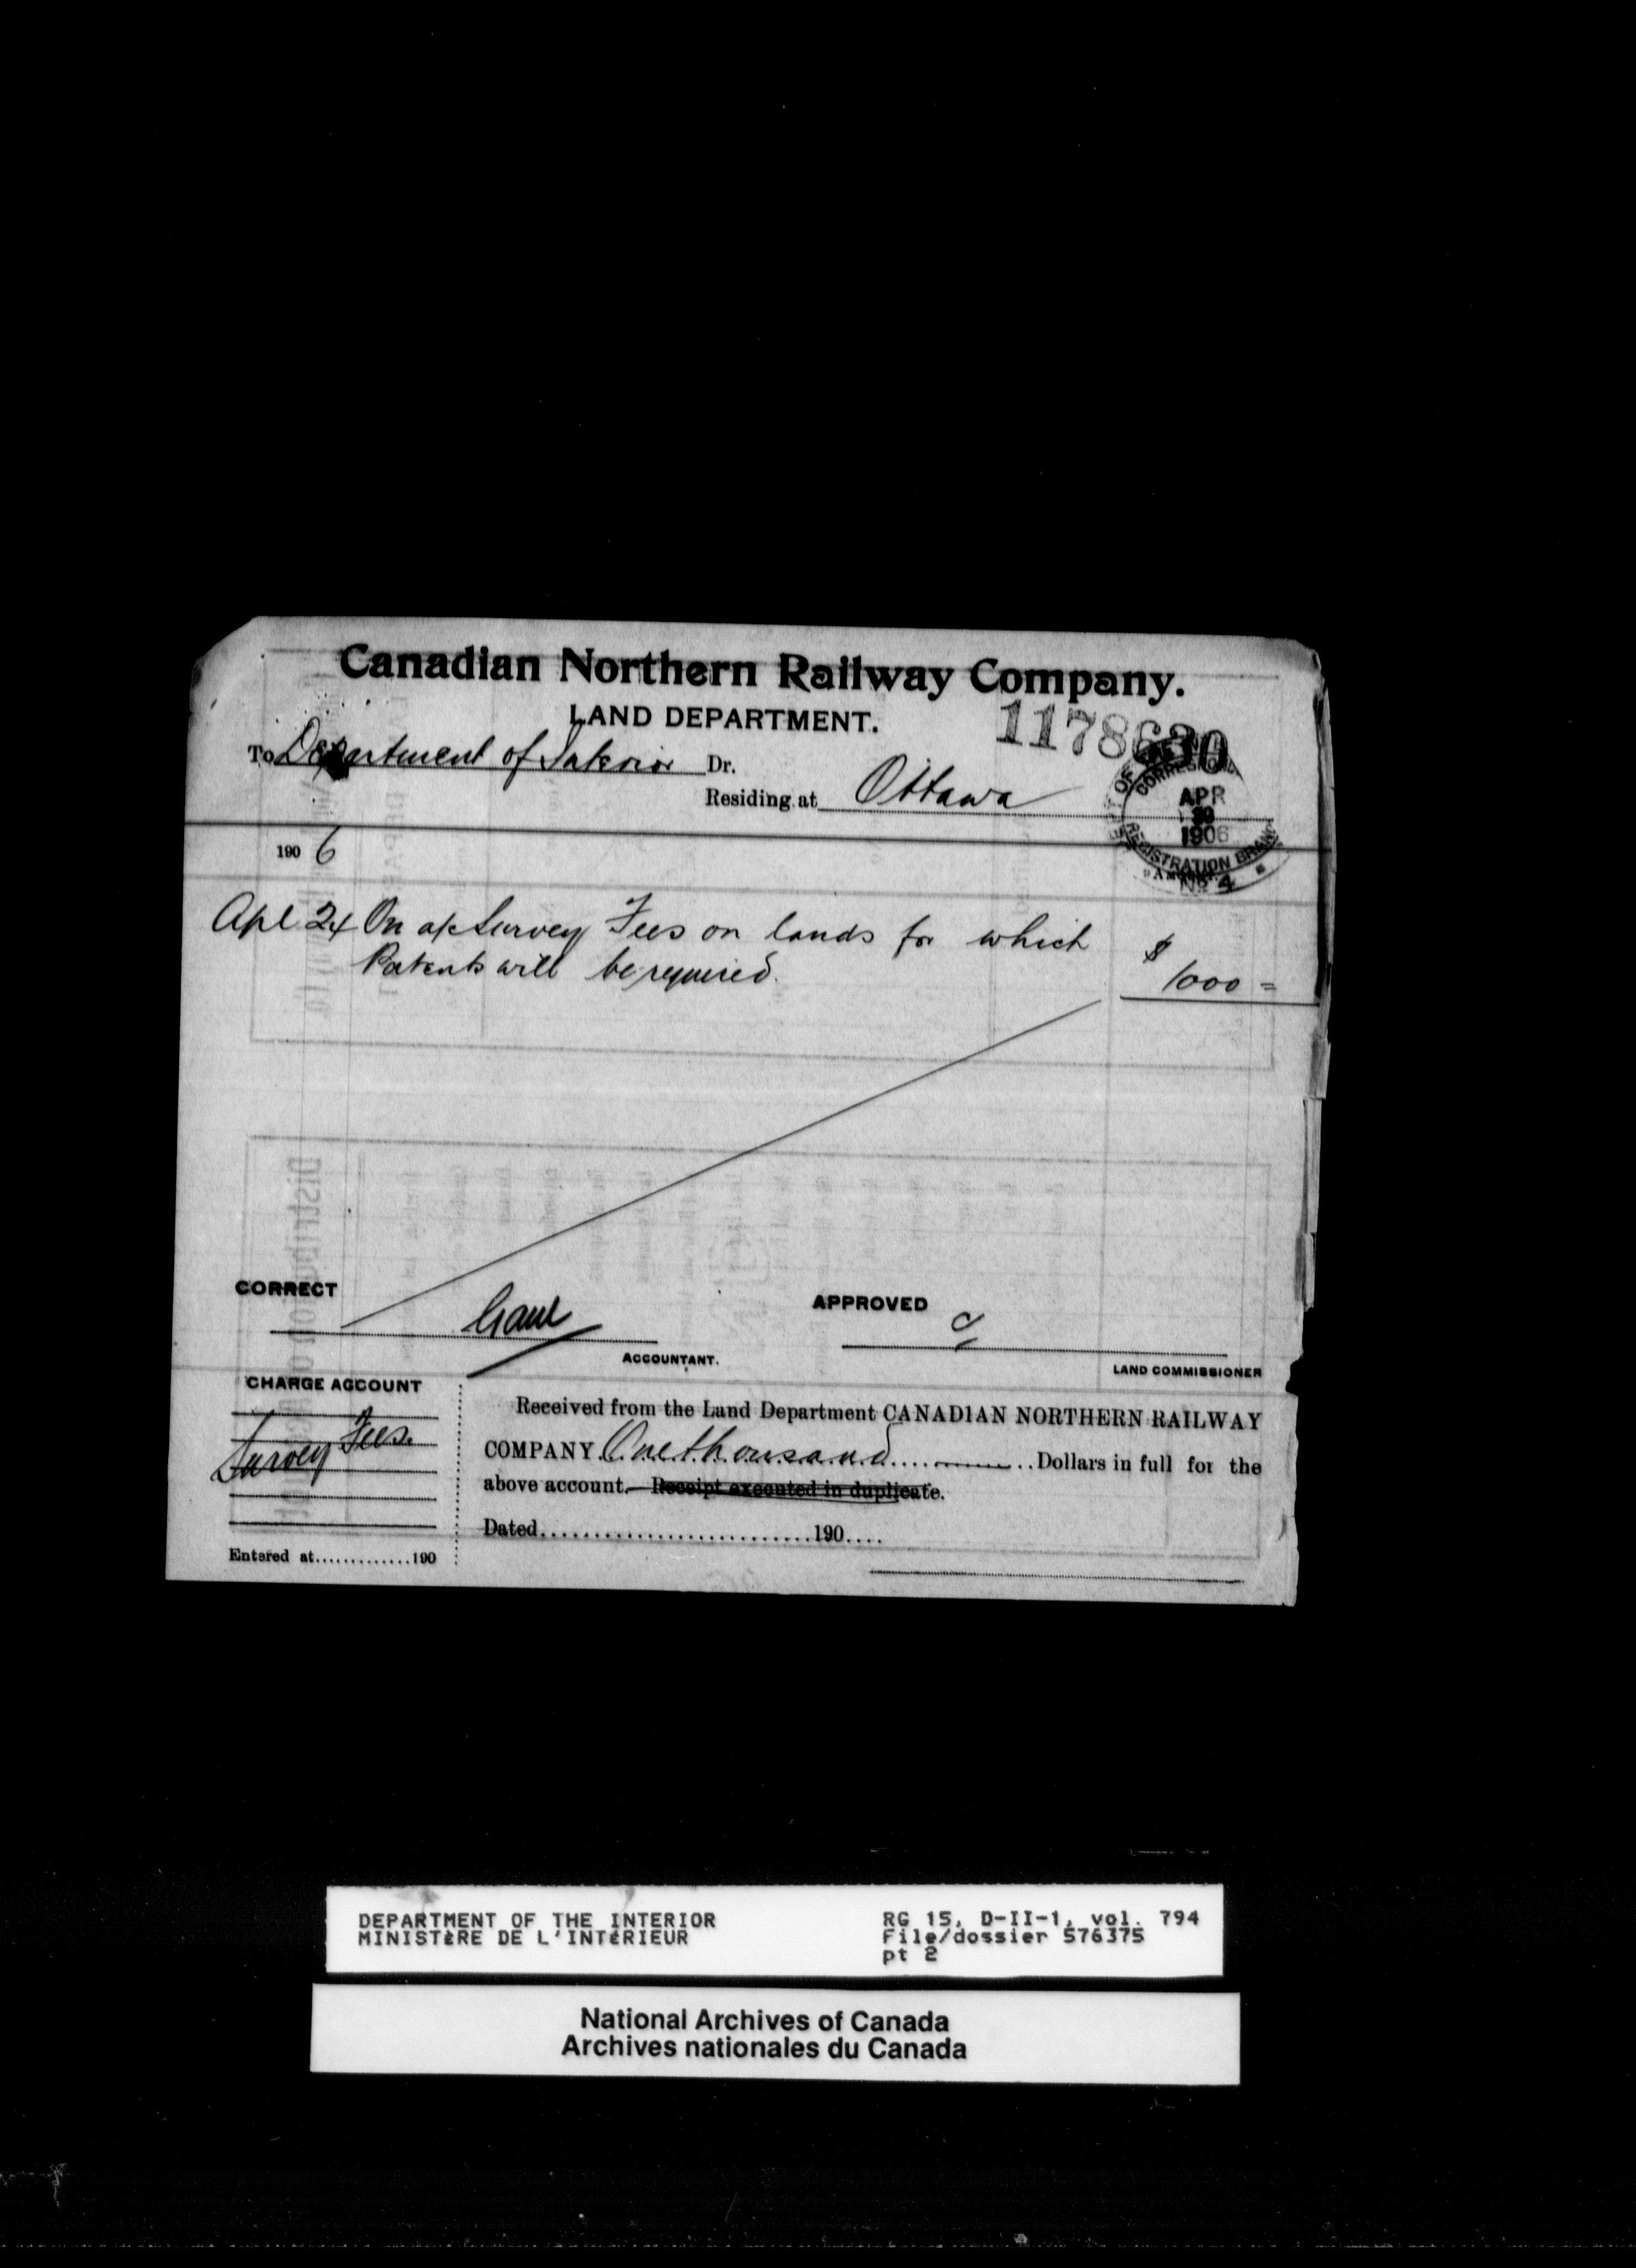 Canadian Northern Railway Company.
LAND DEPARTMENT.
1178630
To Department of Interior Dr.
Residing at Ottawa
CORRES
APR
30
1906
REGISTRATION BRANCH
No 4
1906
Apl 24 On a/c Survey Fees on lands for which
Patents will be required.
$
1000 =
CORRECT
APPROVED
ACCOUNTANT.
LAND COMMISSIONER
CHARGE ACCOUNT
Survey Fees.
Entered at.............190
Received from the Land Department CANADIAN NORTHERN RAILWAY
COMPANY. One thousand ........ Dollars in full for the
above account. Receipt executed in duplicate.
Dated...........................190....
DEPARTMENT OF THE INTERIOR
MINISTÈRE DE L'INTÉRIEUR
RG 15, D-II-1, vol. 794
File/dossier 576375
pt 2
National Archives of Canada
Archives nationales du Canada